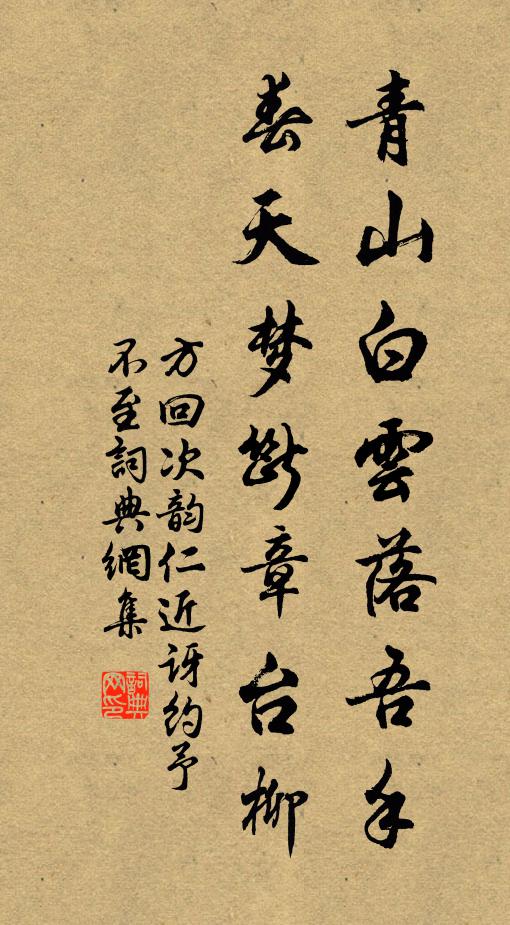 青山白雲落吾手
春天梦断章台柳
方回次韵仁近讶约予
不至詞典網集
詞典網印